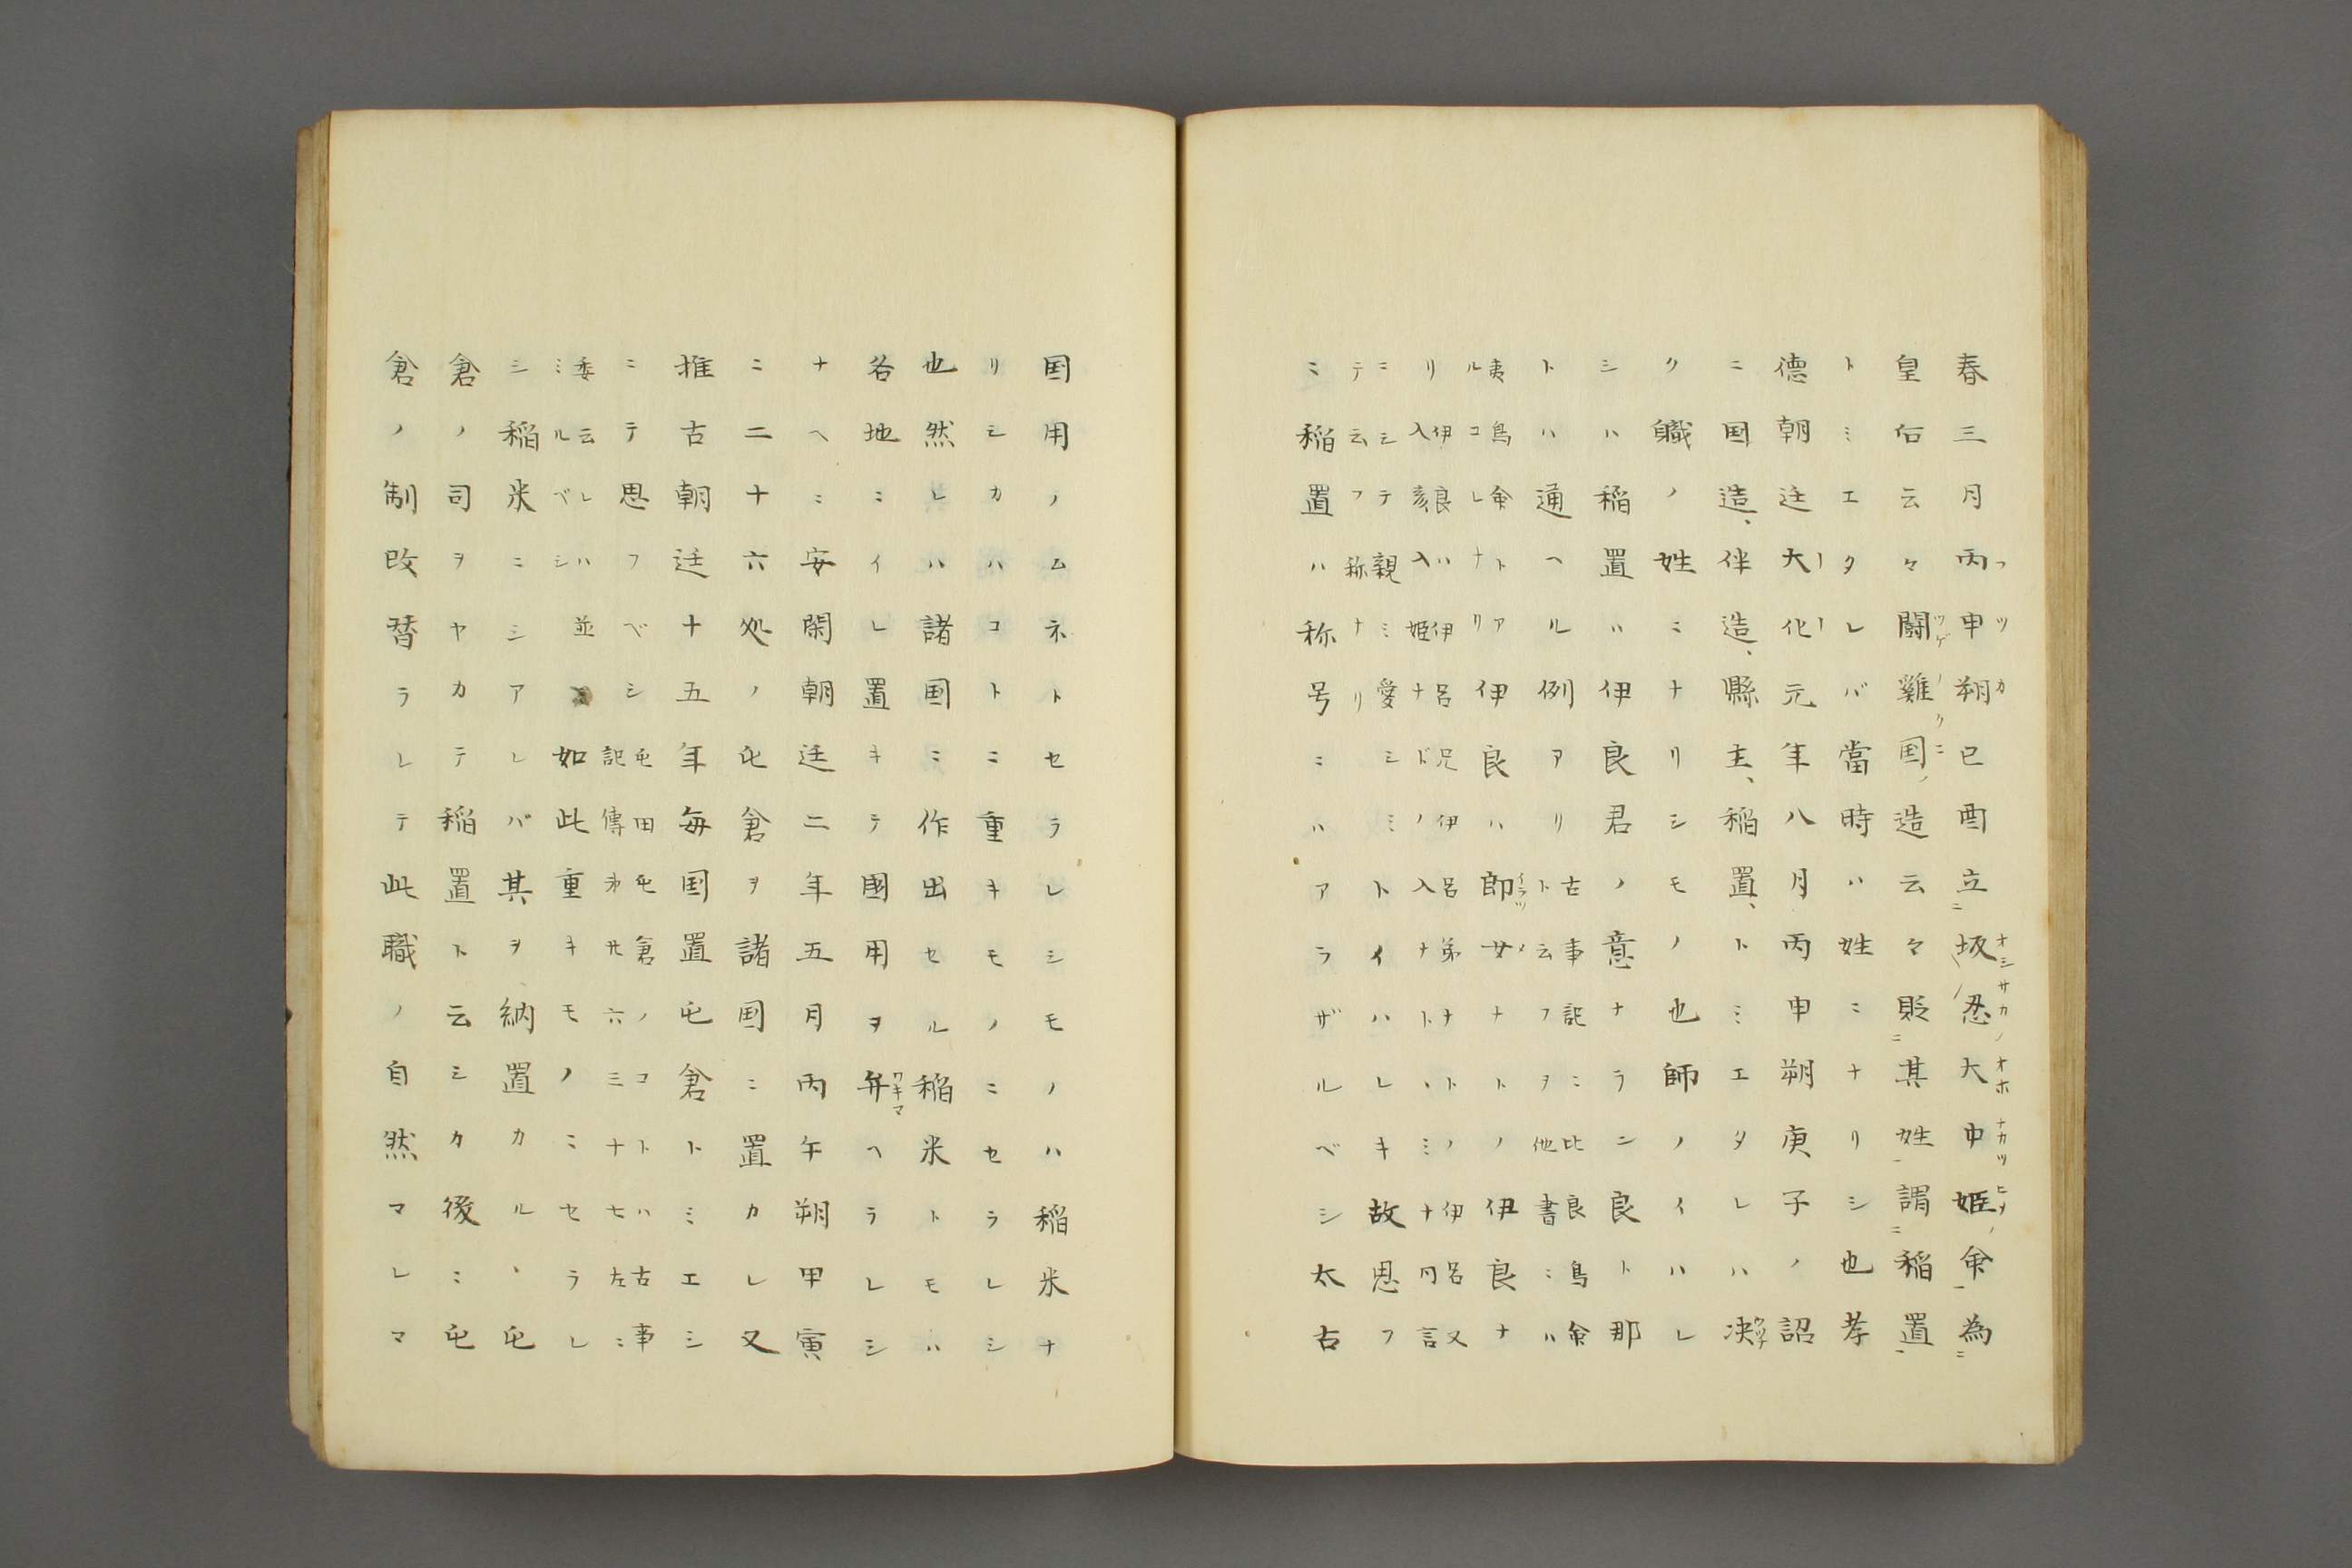 春三月丙申朔己酉立坂忍大中姫命為
皇后云々闘雞国造云々貶其姓謂稲置
トミエタレバ當時ハ姓ニナリシ也孝
徳朝廷大化元年八月丙申朔庚子ノ詔
ニ国造、伴造、縣主、稲置、トミエタレハ决
ク職ノ姓ニナリシモノ也師ノイハレ
シハ稲置ハ伊良君ノ意ナラン良ト那
トハ通ヘル例アリ古事記ニ比良鳥命ト云フヲ他書ミハ
夷鳥命トアルコレナリ伊良ハ郎女ナトノ伊良ナ
リ伊良ハ伊呂兄伊呂弟ナトノ伊呂又入彦入姫ナドノ入ナト、ミナ同言
ニシテ親ミ愛シミトイハレキ故思フ
テ云フ称ナリ
ミ稲置ハ称号ミハアラザルベシ太古
国用ノムネトセラレシモノハ稲米ナ
リシカハコトニ重キモノニセラレシ
也然レハ諸国ミ作出セル稲米トモハ
各地ミイレ置キテ國用ヲ弁ヘラレシ
ナヘミ安閑朝廷二年五月丙午朔甲寅
ニ二十六処ノ屯倉ヲ諸国ニ置カレ又
推古朝廷十五年毎国置屯倉トミエシ
ニテ思フベシ屯田屯倉ノコトハ古事記傳卅六三十七左ミ
委云レハミルベシ並如此重キモノミセラレ
シ稲米ニシアレバ其ヲ納置カル、屯
倉ノ司ヲヤカテ稲置ト云シカ後ミ屯
倉ノ制改替ラレテ此職ノ自然マレマ